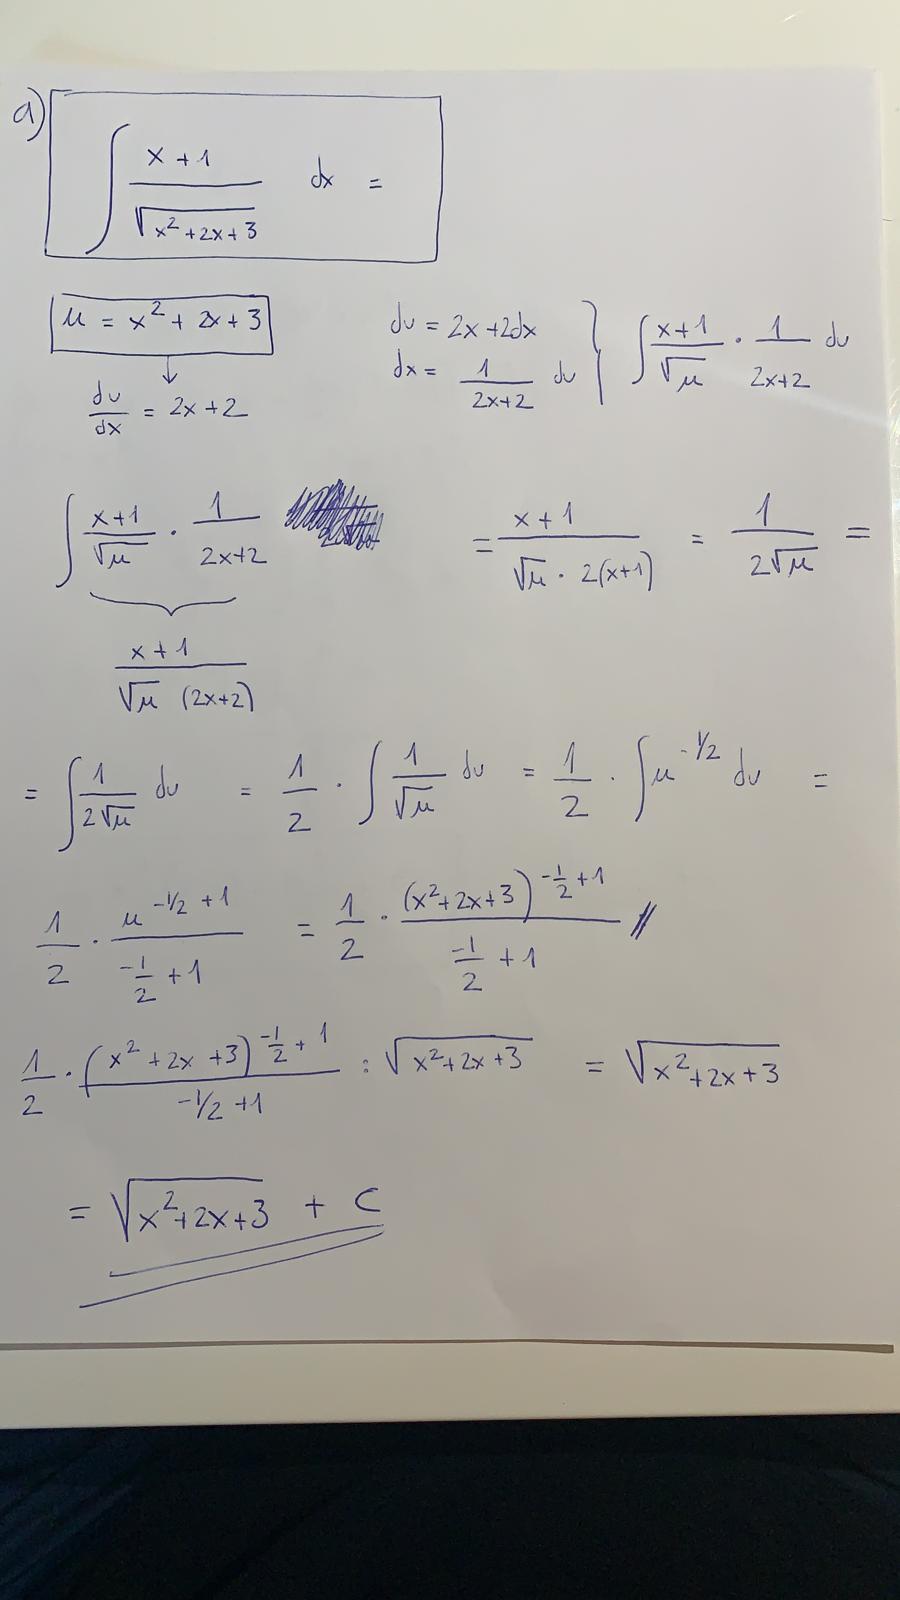 a)
∫ (x + 1)/√(x² + 2x + 3) dx =
μ = x² + 2x + 3
du/dx = 2x + 2
du = 2x + 2dx
dx = 1/(2x+2) du
∫ (x+1)/√μ · 1/(2x+2) du
∫ (x+1)/√μ · 1/(2x+2)
= (x + 1)/(√μ · 2(x+1)) = 1/(2√μ) =
(x + 1)/(√μ (2x+2))
= ∫ 1/(2√μ) du = 1/2 · ∫ 1/√μ du = 1/2 · ∫ μ^(-1/2) du =
1/2 · μ^(-1/2 + 1)/(-1/2 + 1) = 1/2 · (x² + 2x + 3)^(-1/2 + 1)/(-1/2 + 1) //
1/2 · (x² + 2x + 3)^(-1/2 + 1)/(-1/2 + 1) : √(x² + 2x + 3) = √(x² + 2x + 3)
= √(x² + 2x + 3) + C